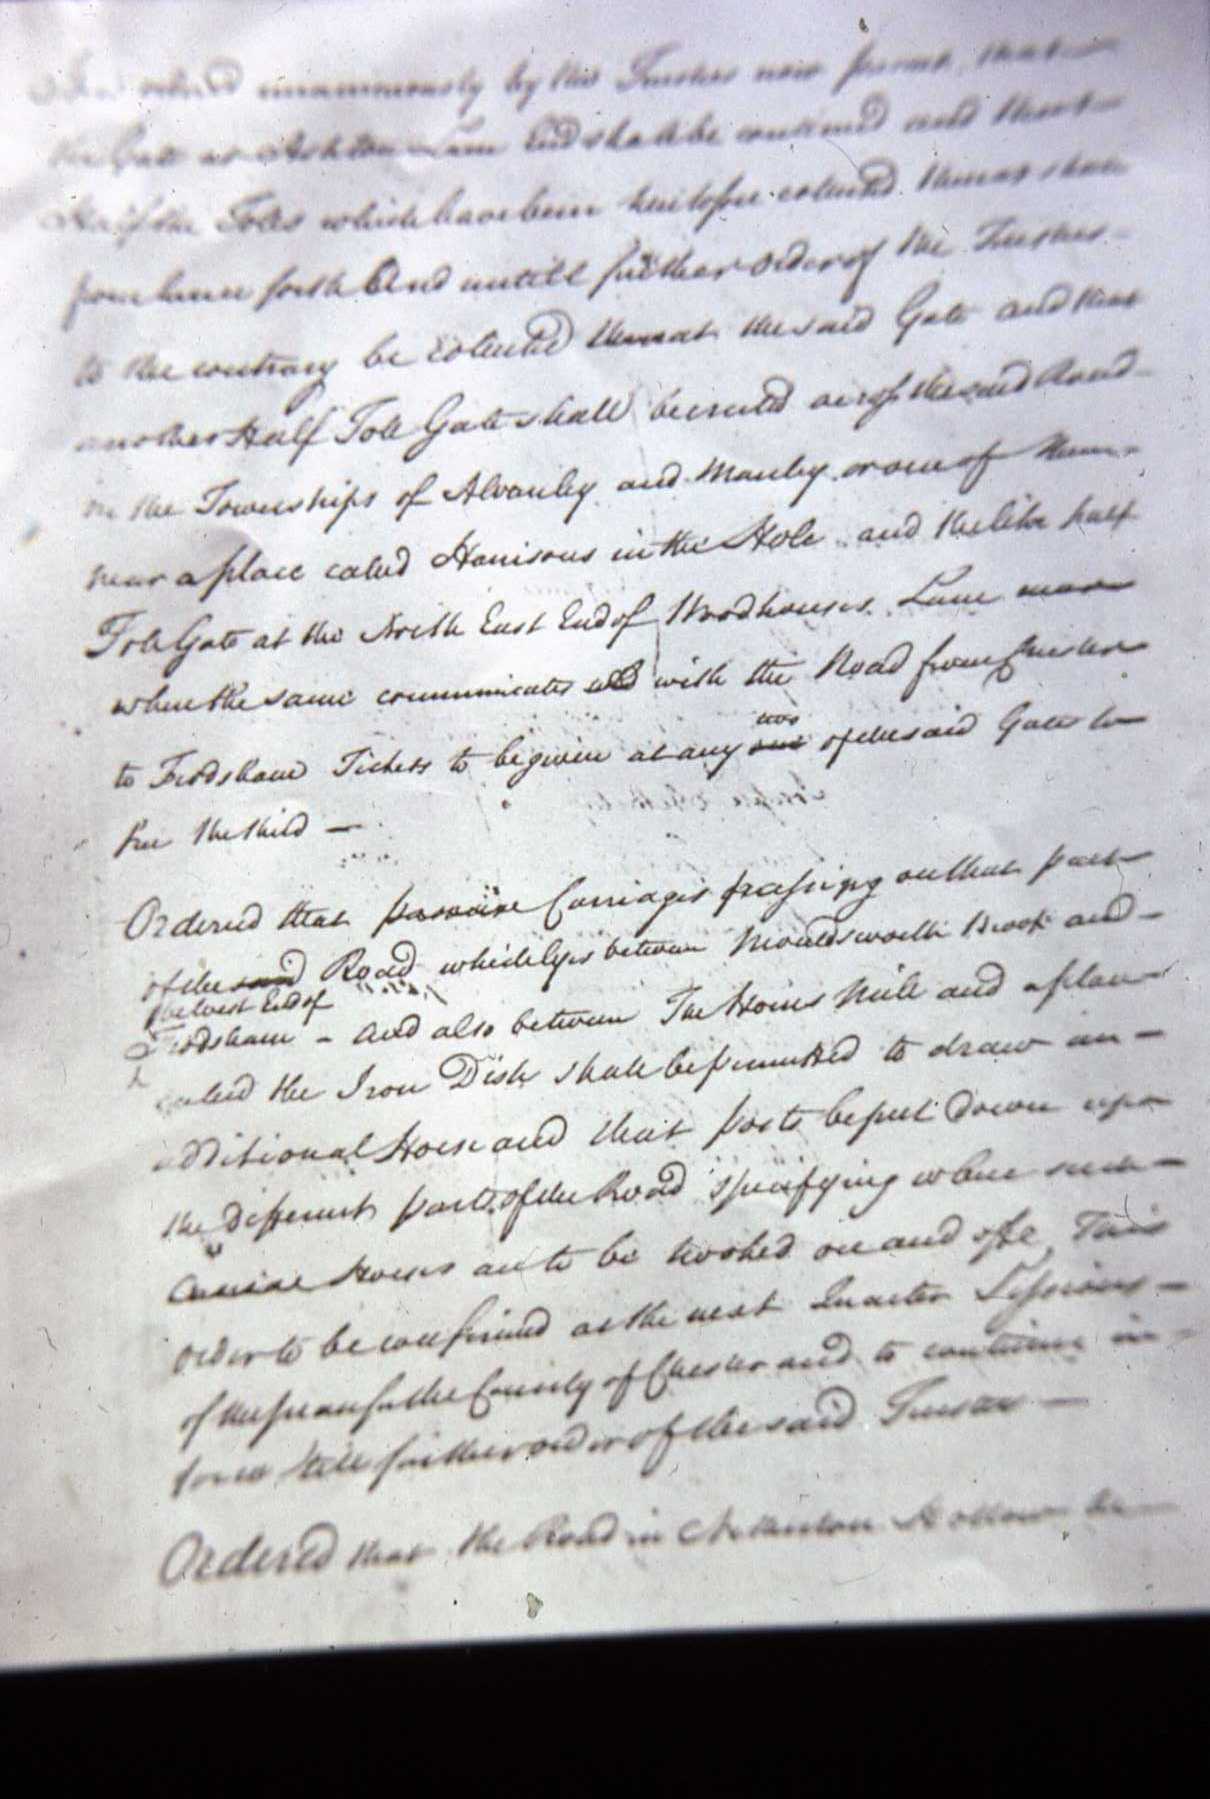 unanimously by the Trustees now present that
the Gate at Ashton Lane End shall be continued and that
Half the Tolls which have been heretofore collected thereat shall
from hence forth And untill further order of the Trustees
to the contrary be collected thereat the said Gate and that
another Half Toll Gate shall be erected across the said Road
in the Townships of Alvanley and Manley or one of them
near a place called Harrisons in the Hole and the like half
Toll Gate at the North East End of Woodhouses Lane near
where the same communicates with the Road from Chester
to Frodsham Tickets to be given at any two one of the said Gates to
free the third —
Ordered that Carriages passing on that part
of the said Road which lyes between Mouldsworth Brook and
the West End of
Frodsham - and also between The Horns Mill and a place
called the Iron Dish shall be permitted to draw an
additional Horse and that posts be put down upon
the different parts of the Road specifying where such
Horses are to be hooked on and off This
order to be confirmed at the next Quarter Sessions
of the peace for the County of Chester and to continue in
force till further order of the said Trustees —
Ordered that the Road in Hollow be